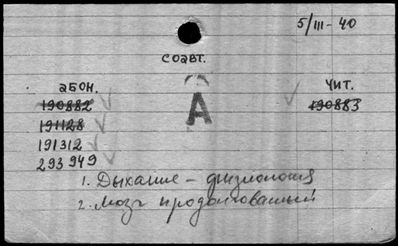 5/III - 40
соавт.
абон.
чит.
190882
А
190883
191128
191312
293949
1. Дыхание – физиология
2. Мозг продолговатый